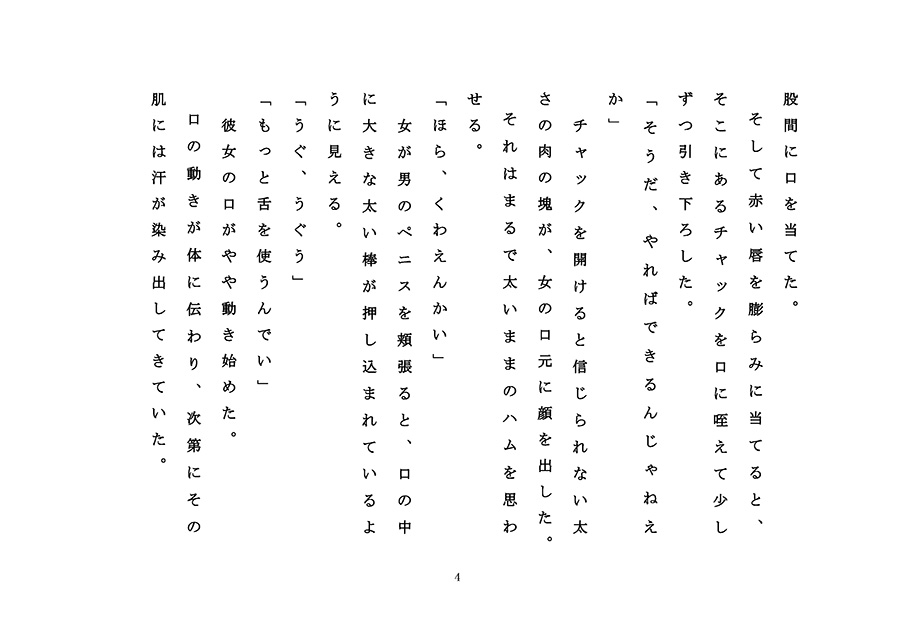 股間に口を当てた。
そして赤い唇を膨らみに当てると、
そこにあるチャックを口に咥えて少し
ずつ引き下ろした。
「そうだ、やればできるんじゃねえ
か」
チャックを開けると信じられない太
さの肉の塊が、女の口元に顔を出した。
それはまるで太いままのハムを思わ
せる。
「ほら、くわえんかい」
女が男のペニスを頬張ると、口の中
に大きな太い棒が押し込まれているよ
うに見える。
「うぐ、うぐう」
「もっと舌を使うんでい」
彼女の口がやや動き始めた。
口の動きが体に伝わり、次第にその
肌には汗が染み出してきていた。
4